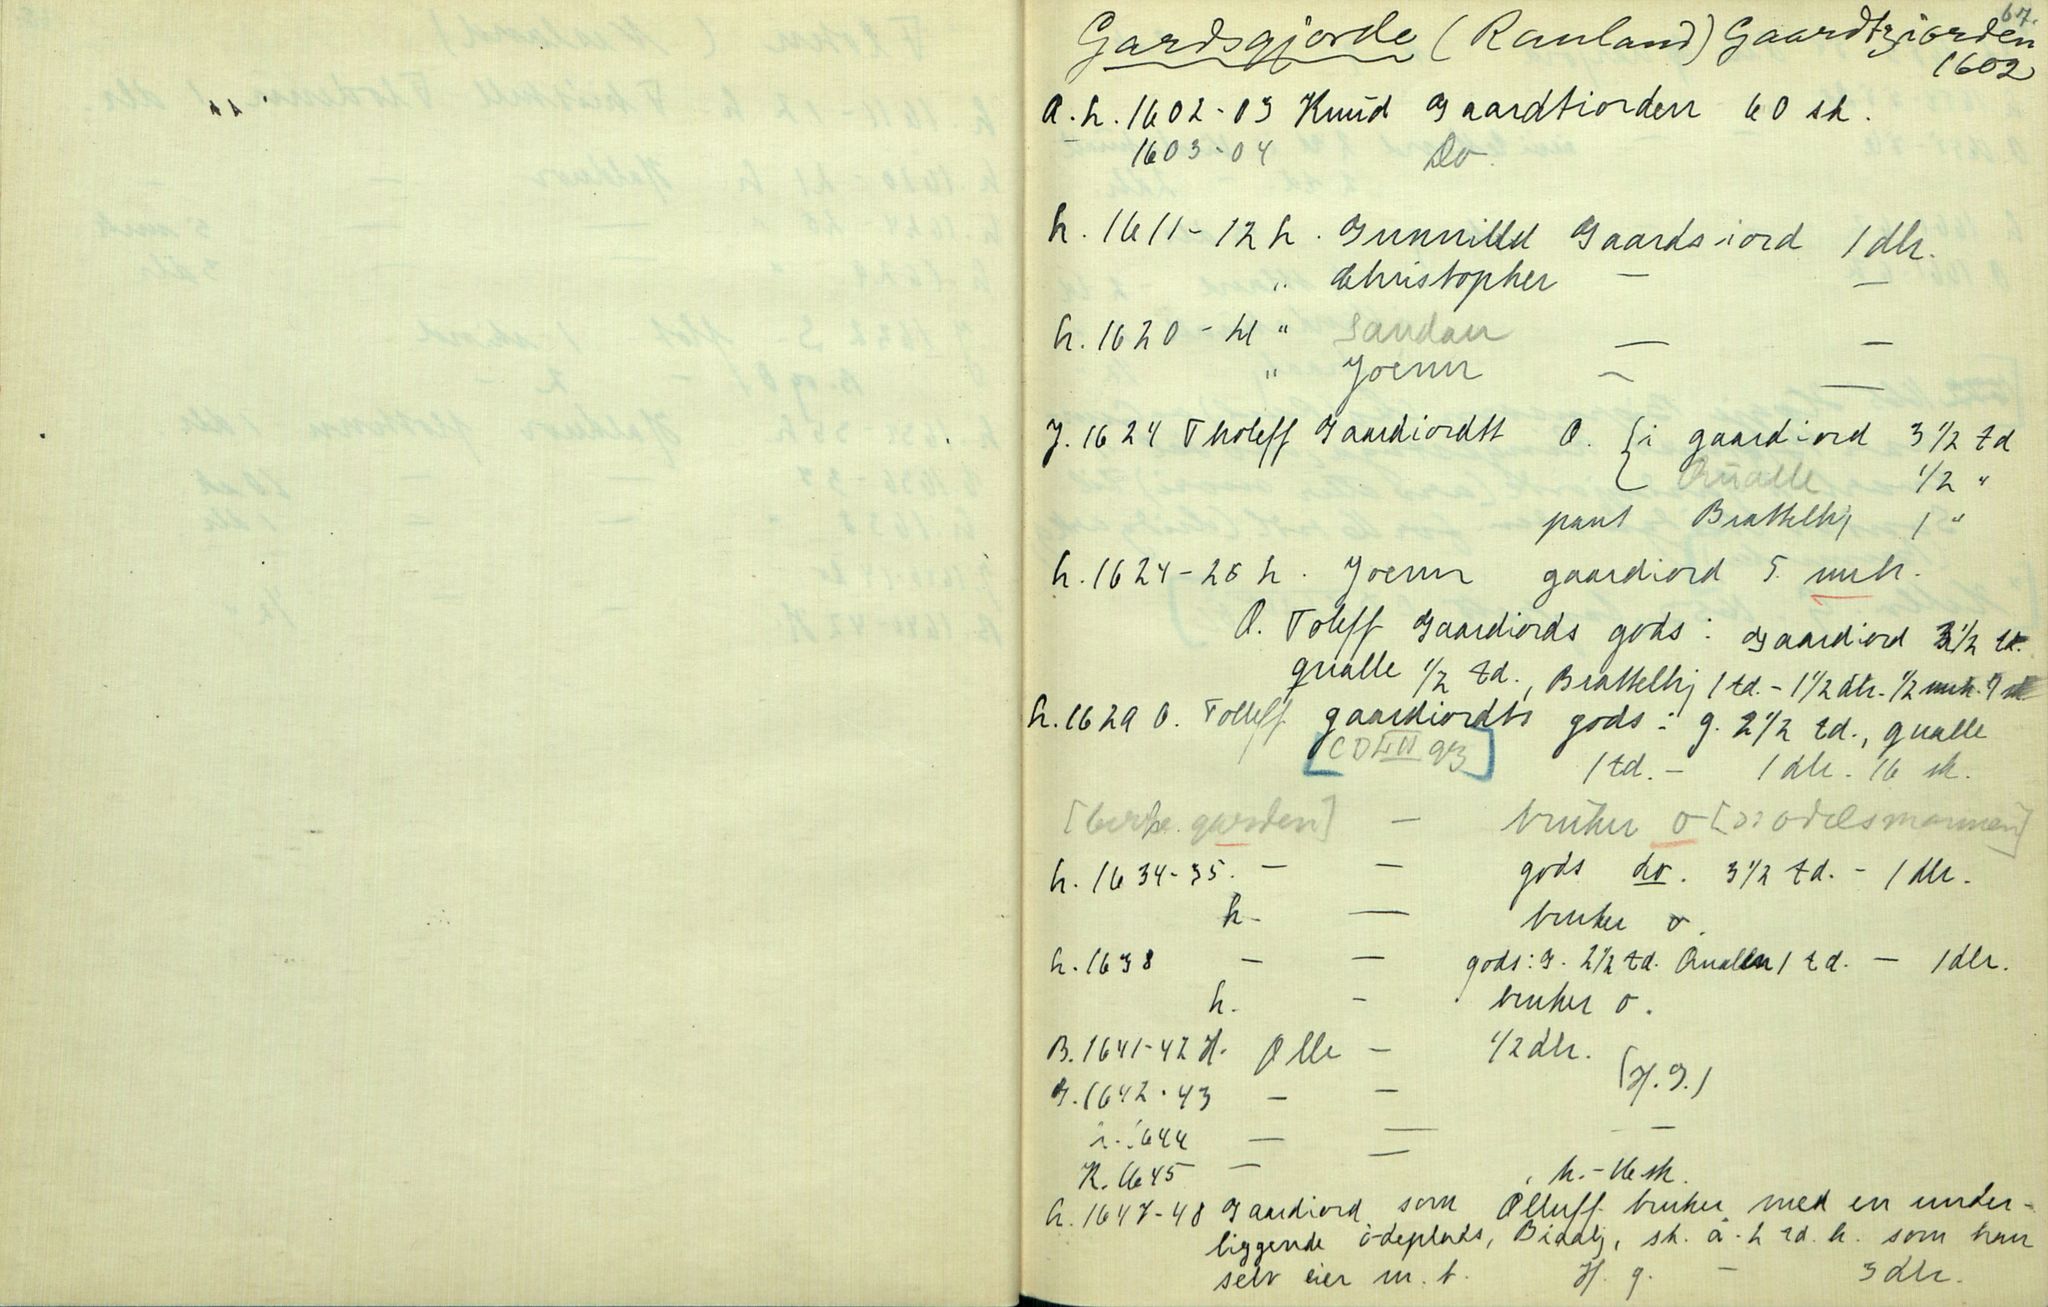 67.
Gardsgjorde (Rauland) Gaardtziorden
1602
O. h. 1602-03 Knud Gaardtiorden 60 sk.
1603-04 Do.
h. 1611-12 h. Gunnilld Gaardsiord 1 dlr.
" Christopher — —
h. 1620-21 " Sandau — —
" Joenn — —
J. 1624 Tholeff Gaardiordtt O. { i gaardiord 3 1/2 td
Qualle 1/2 "
pant Brattelhj 1 "
h. 1624-25 h. Joenn gaardiord 5 mrk.
O. Toleff Gaardiords gods: Gaardiord 3 1/2 td.
qualle 1/2 td., Brattelhj 1 td. - 1 1/2 dlr. 1/2 mrk.
h. 1629 O. Tolleff gaardiordts gods: g. 2 1/2 td., qualle
1 td. - 1 dlr. 16 sk.
garden] — bruker o [odelsmannen]
h. 1634-35. — — gods do. 3 1/2 td. - 1 dlr.
h. — bruker o.
h. 1638 — — gods: g. 2 1/2 td. Quallen 1 td. — 1 dlr.
h. - bruker o.
B. 1641-42 H. Olle — 1/2 dlr.
(H. G.)
G. 1642-43 — —
1644 — — —
K. 1645 — h. - 16 sk.
h. 1647-48 Gaardiord som Olluff bruker med en under-
liggende ødeplads, sk. å. h som han
selv eier m. b. H. g. - 3 dlr.